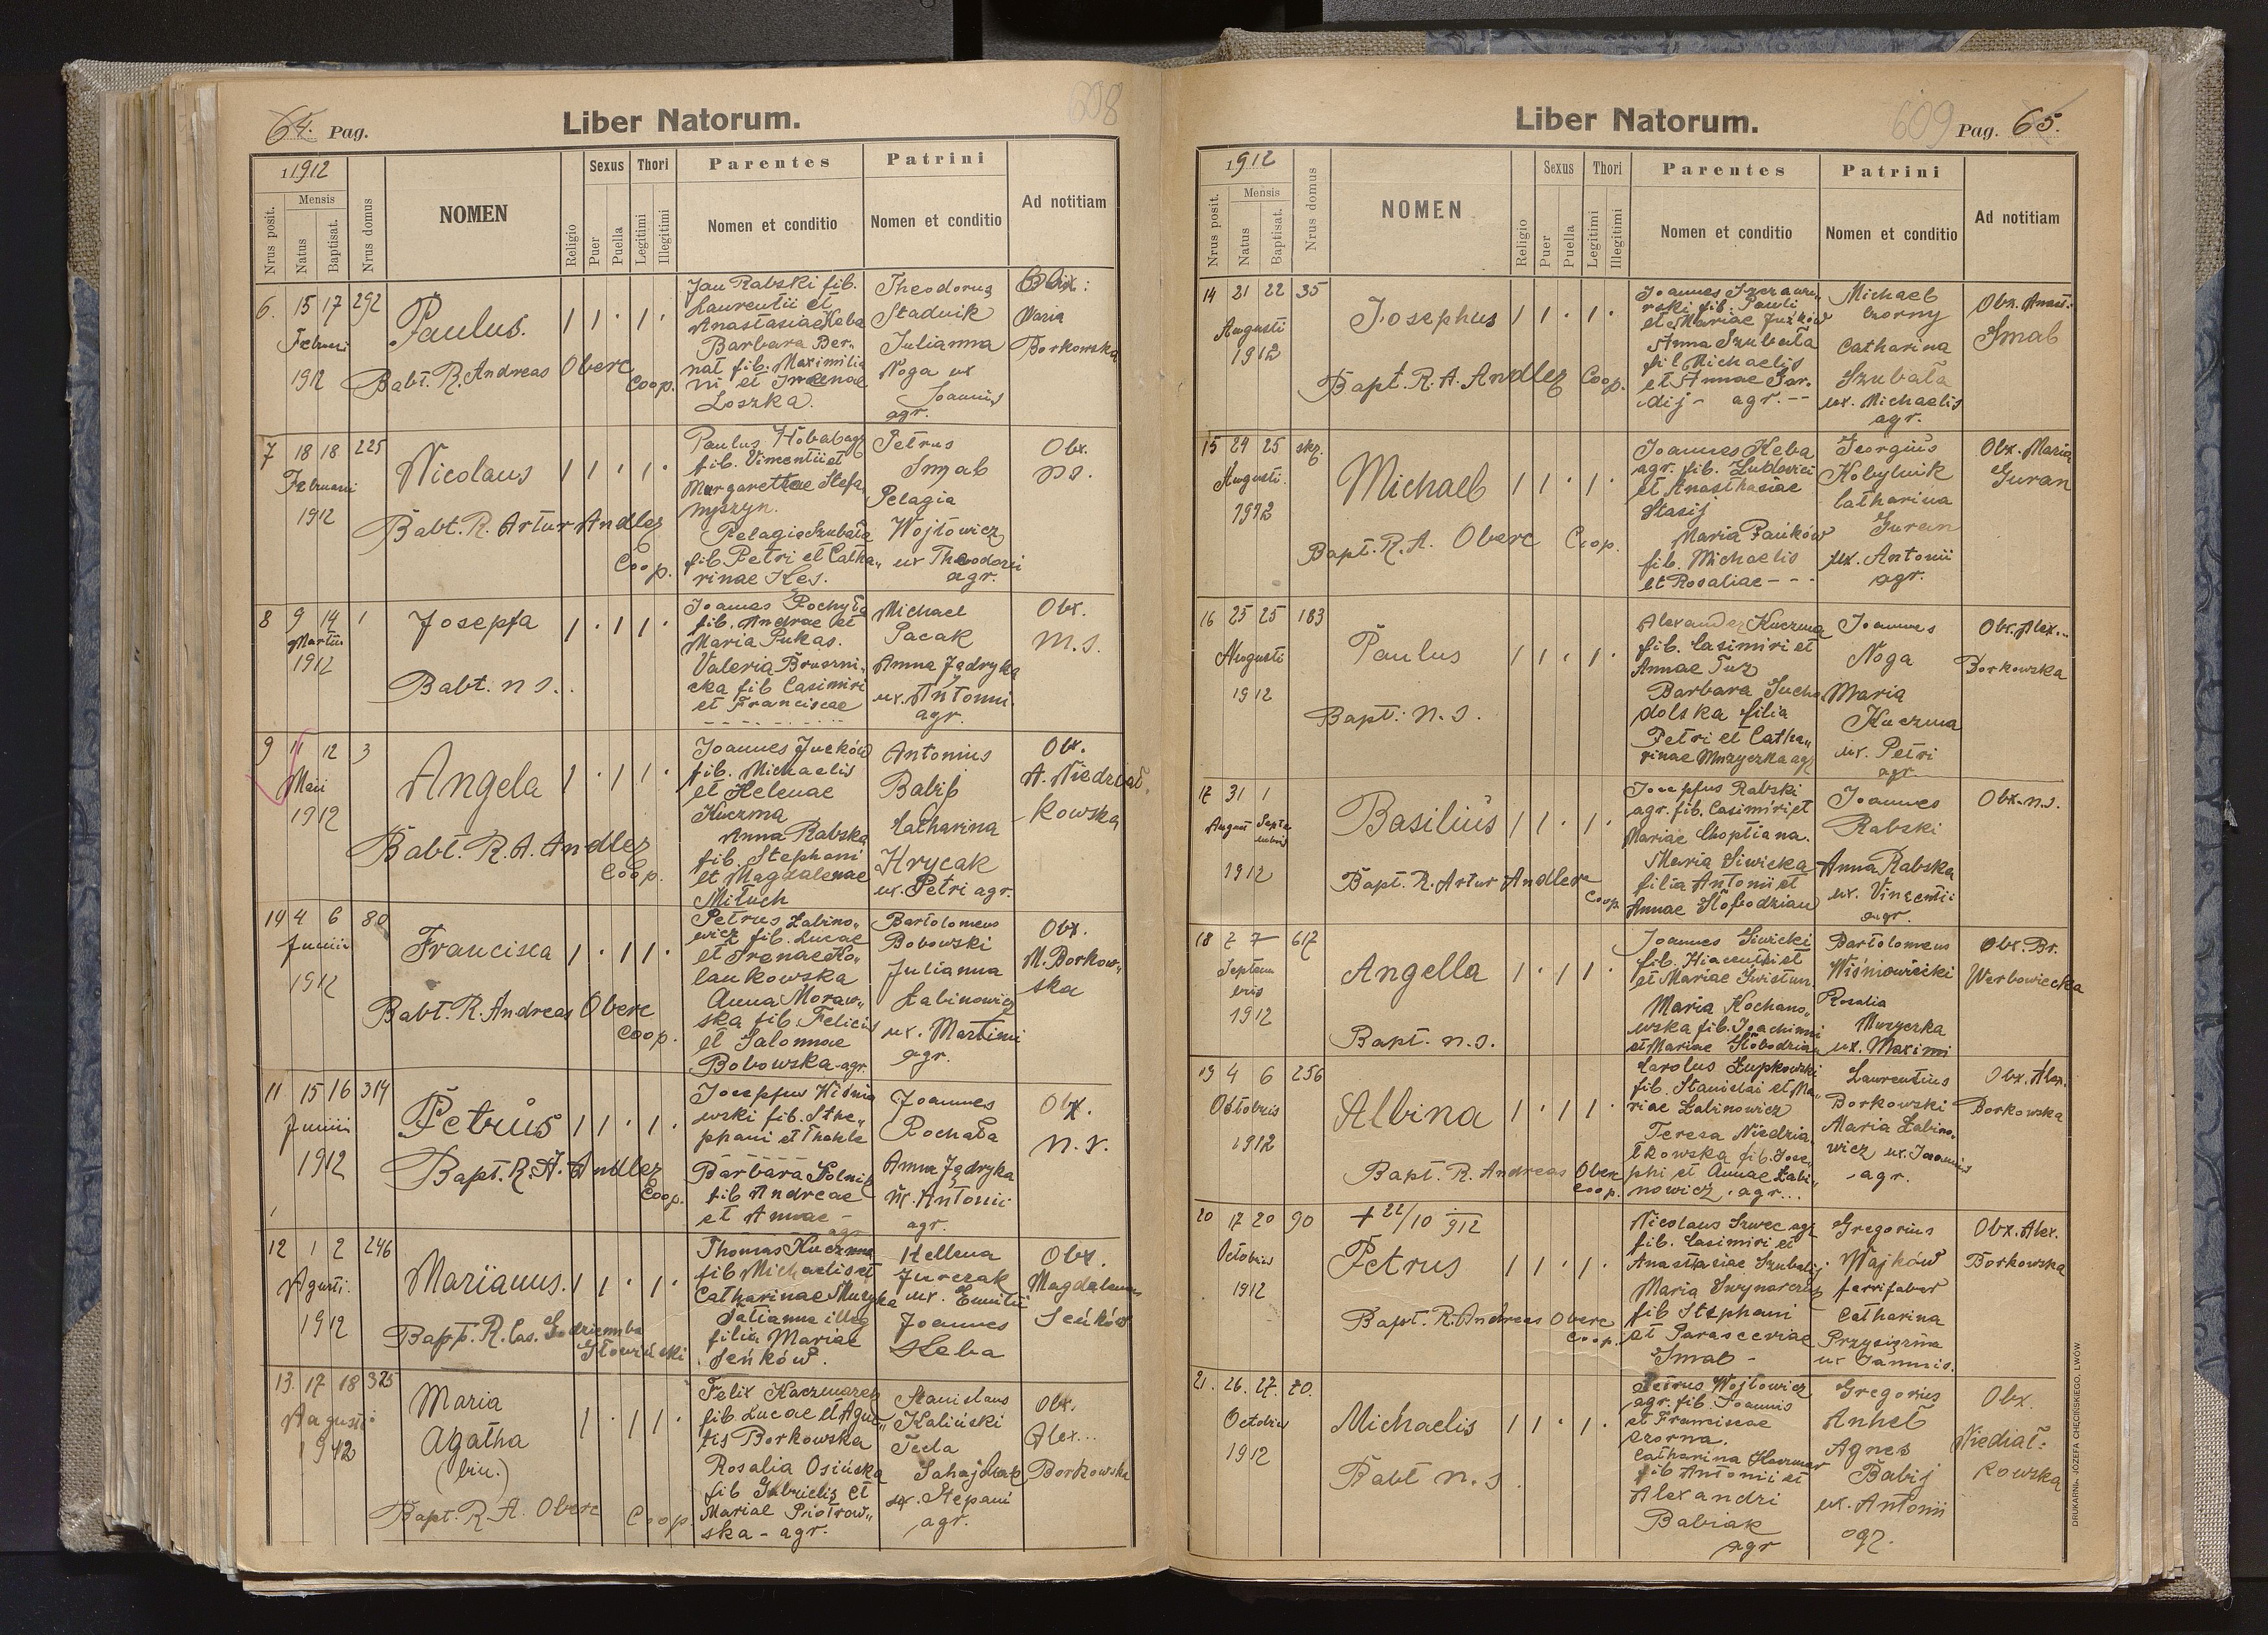 64. Pag.
Liber Natorum.
608
1 1912
Nrus posit.
Mensis
Natus
Baptisat.
Nrus domus
NOMEN
Religio
Sexus
Puer
Puella
Thori
Legitimi
Illegitimi
Parentes
Nomen et conditio
Patrini
Nomen et conditio
Ad notitiam
6. 15 17 292
Februarii
1912
Paulus.
1 1 · 1 ·
Babt. R. Andreas Oberc
Coop.
Jan Rabski fil.
Laurentii et
Anastasiae Heba
Barbara Ber-
nat fil. Maximilia
ni et Irenae
Loszka.
Theodorus
Stadnik
Julianna
Noga ux
Joannis
agr.
Obx:
Maria
Borkowska
7 18 18 225
Februarii
1912
Nicolaus
1 1 · 1 ·
Babt. R. Artur Andler
Coop.
Paulus
fil. Vincentii et
Margarethae Stefa
nyszyn.
Pelagia Szubała
fil. Petri et Catha„
rinae Hes.
Petrus
Smab
Pelagia
Wojtowicz
ux Theodorii
agr.
Obx.
n s.
8 9 14 1
Martii
1912
Josepfa
1 · 1 1 ·
Babt. n s.
Joannes Pochyła
fil. Andreae et
Maria Pukas.
Valeria
cka fil Casimiri
et Franciscae
Michael
Pacak
Anna Jądryka
ux. Antonii.
agr.
Obx.
m. s.
9 11 12 3
Maii
1912
Angela
1 · 1 1 ·
Babt. R. A. Andler
Coop.
Joannes Juckow
fil. Michaelis
et Helenae
Kuczma
Anna Rabska
fil. Stephani
et Magdalenae
Mituch
Antonius
Babij
Catharina
Hrycak
ux. Petri agr.
Obx.
A. Niedział.
kowska
10 4 6 80
Junii
1912
Francisca
1 · 1 1 ·
Babt. R. Andreas Oberc
Coop.
Petrus Łabino„
wicz fil. Lucae
et Irenae Ko„
lankowska
Anna Moraw„
ska fil. Felicis
et Salomae
Bobowska agr.
Bartolomeus
Bobowski
Julianna
Łabinowicz
ux. Martini
agr.
Obx.
M. Borkow„
ska
11 15 16 314
Junii
1912
Petrus
1 1 · 1 ·
Bapt. R. A. Andler
Coop.
Josepfus Wiśnio
wski fil. Ste„
phani et Thekle
Barbara
fil Andreae
et Annae -
agr
Joannes
Rochała
Anna Jądryka
ux. Antonii
agr.
Obx.
n. s.
12 1 2 246
Agusti.
1912
Marianus.
1 1 · 1 ·
Bapt. R. Cas. Godziemba
Głowiński
Thomas Kuczma
fil Michaelis et
Catharinae Muzyka
Tatianna illeg
filia Mariae
Seńków.
Hellena
Jurczak
ux. Emilii
Joannes
Heba
Obx.
Magdalena
Seńków
13. 17 18 325
Agusti
1912
Maria
Agatha
(bin.)
1 · 1 1 ·
Bapt. R. A. Oberc Coop.
Felix Kaczmarek
fil. Lucae et Agne„
tis Borkowska
Rosalia Osińska
fil Gabrielis et
Mariae Piotrow„
ska - agr.
Stanislaus
Kaliński
Tecla
Sahajdak
ux. Stepani
agr.
Obx.
Alex...
Borkowska
Liber Natorum.
609
Pag. 65.
1912
Nrus posit.
Mensis
Natus
Baptisat.
Nrus domus
NOMEN
Religio
Sexus
Puer
Puella
Thori
Legitimi
Illegitimi
Parentes
Nomen et conditio
Patrini
Nomen et conditio
Ad notitiam
14 21 22 35
Augusti
1912
Josephus
1 1 · 1 ·
Bapt. R. A. Andler Coop.
Joannes
rski fil. Pauli
et Mariae Juźków
Anna Szubała
fil Michaelis
et Annae Gar.
dij - agr. --
Michael
Czorny
Catharina
Szubała
ux. Michaelis
agr.
Obx. Anast.
Smab
15 24 25 skp.
Augusti.
1912
Michael
1 1 · 1 ·
Bapt. R. A. Oberc Coop.
Joannes Heba
agr. fil. Ludovici
et Anasthasiae
Stasij
Maria Pańków
fil. Michaelis
et Rosaliae - - -
Georgius
Kobylnik
Catharina
Guran
ux. Antonii
agr.
Obx. Maria
Guran
16 25 25 183
Augusti
1912
Paulus
1 1 · 1 ·
Bapt: n. s.
Alexander Kuczma
fil. Casimiri et
Annae Tuz
Barbara Sucho
dolska filia
Petri et Catha„
rinae Muzyczka agr
Joannes
Noga
Maria
Kuczma
ux. Petri
agr
Obx. Alex..
Borkowska
17 31 1
August Septe
mbris
1912
Basilius
1 1 · 1 ·
Bapt. R. Artur Andler
Coop.
Josepfus Rabski
agr. fil. Casimiri et
Mariae Choptiana.
Maria Siwicka
filia Antonii et
Annae Słobodzian
Joannes
Rabski
Anna Rabska
ux. Vincentii
agr.
Obx. n. s.
18 7 7 617
Septem
bris
1912
Angella
1 · 1 1 ·
Bapt. n. s.
Joannes Siwicki
fil. Hiacenthi et
et Mariae Świstun
Maria Kochano„
wska fil. Joachimi
et Mariae Słobodzian
Bartolomeus
Wiśniowiecki
Rosalia
Muzyczka
ux. Maximi
Obx. Br.
Werbowiecka
19 4 6 256
Octobris
1912
Albina
1 · 1 1 ·
Bapt. R. Andreas Oberc
Coop.
Carolus Łupkowski
fil. Stanislai et Ma„
riae Łabinowicz
Teresa Niedzia
łkowska fil. Jose„
phi et Annae Łabi„
nowicz. agr...
Laurentius
Borkowski
Maria Łabino„
wicz ux. Joannis
- agr.
Obx. Alex.
Borkowska
20 17 20 90
Octobris
1912
+ 22/10 912
Petrus
1 1 · 1 ·
Bapt. R. Andreas Oberc
Coop.
Nicolaus Szwec agr
fil. Casimiri et
Anasthasiae Szubelij
Maria
fil Stephani
et Parasceviae
Smab -
Gregorius
Wajków
ferrifaber
Catharina
ux Jannis.
Obx. Alex.
Borkowska
21. 26. 27. 70.
Octobris
1912
Michaelis
1 1 · 1 ·
Babt n. s.
Petrus Wojtowicz
agr. fil. Joannis
et Franciscae
Czorna.
Catharina
fil Antonii et
Alexandri
Babiak
agr
Gregorius
Anhel
Agnes
Babij
ux. Antonii
agr.
Obx.
Niedział:
kowska
DRUKARNIA JÓZEFA CHĘCIŃSKIEGO, LWÓW